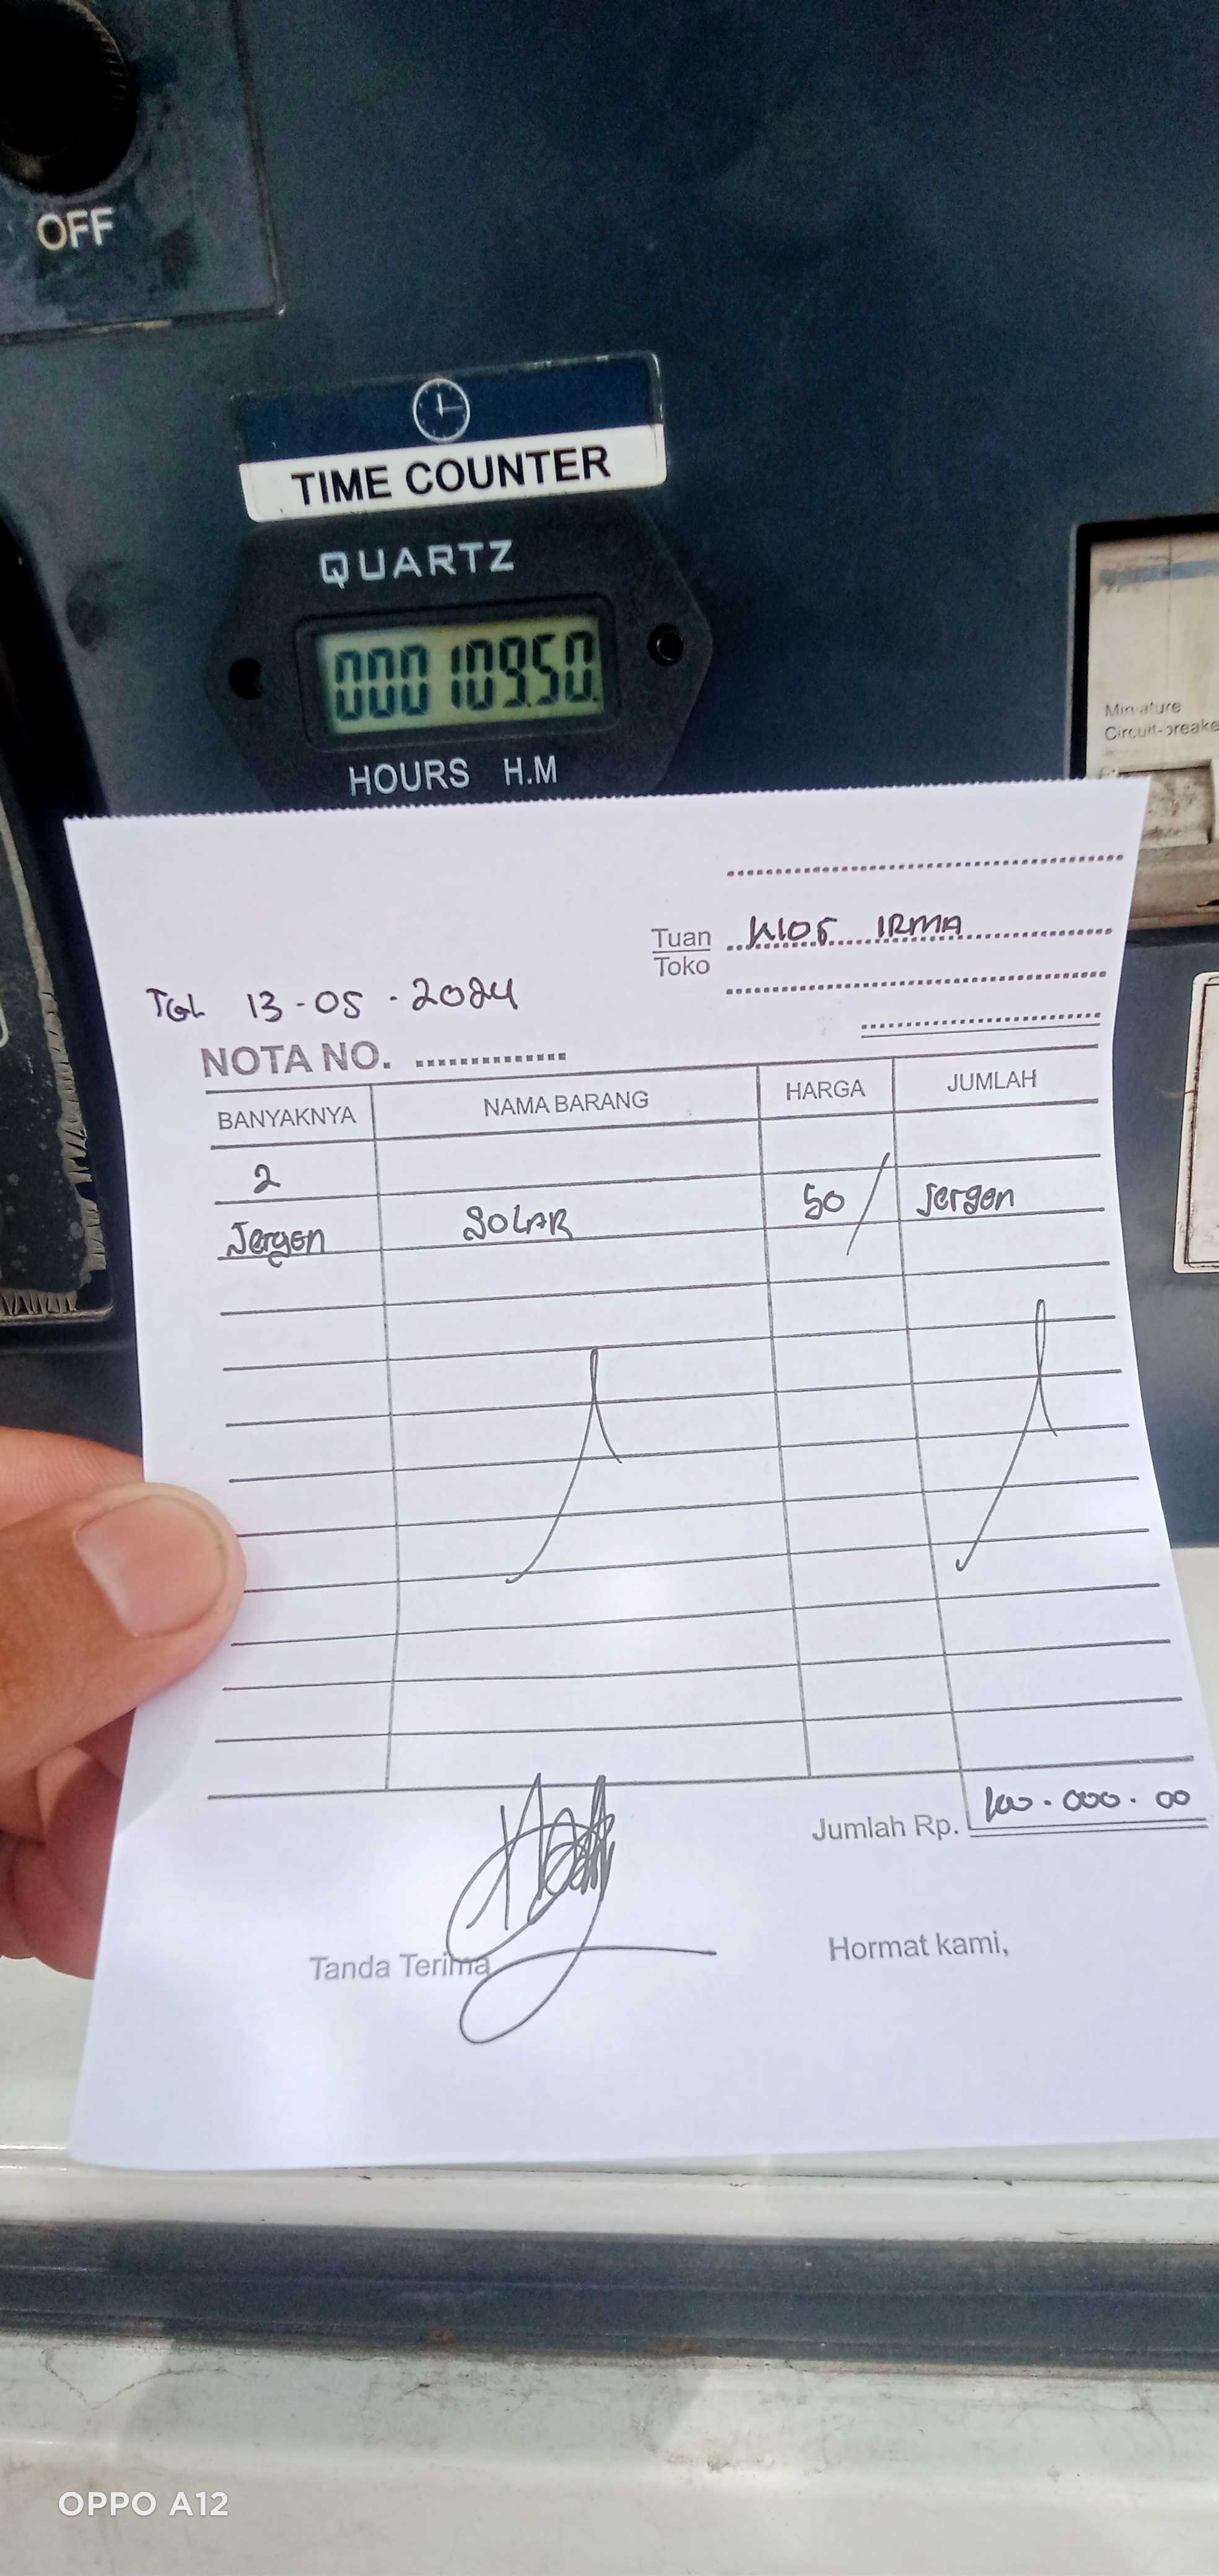 OFF
TIME COUNTER
QUARTZ
000109.50
HOURS H.M
Miniature
Circuit-breake
Tuan KIOS IRMA
Toko
TGL 13-05-2024
NOTA NO.
BANYAKNYA NAMA BARANG HARGA JUMLAH
2
Jergen SOLAR 50 / Jergen
Jumlah Rp. 100.000.00
Tanda Terima Hormat kami,
OPPO A12